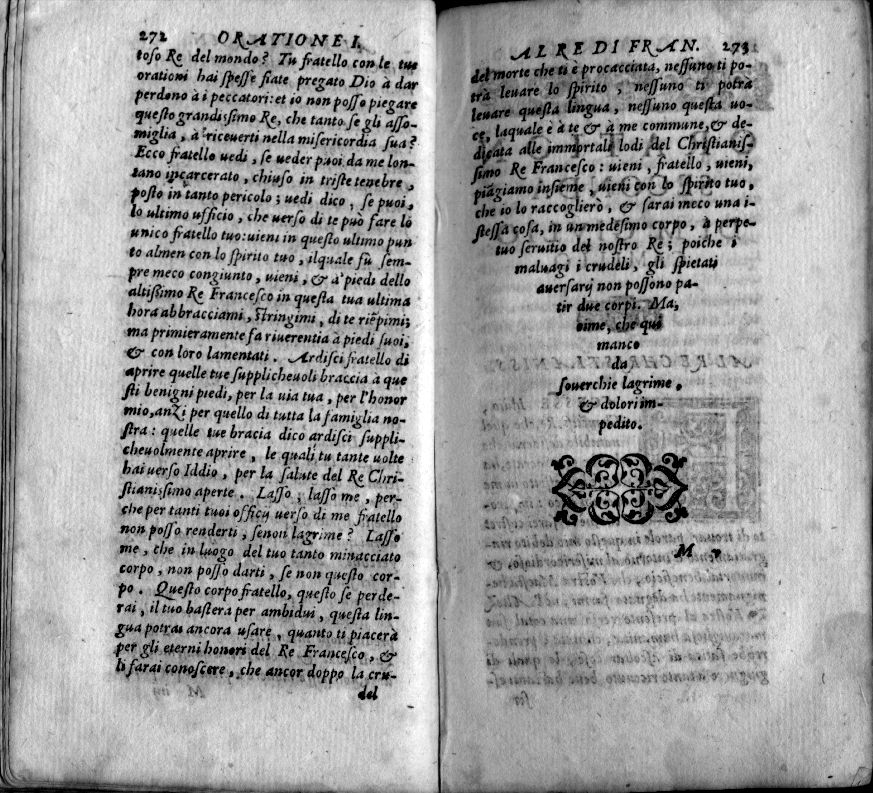 272 ORATIONE I.
toso Re del mondo? Tu fratello con le tue
orationi hai speſſe fiate pregato Dio à dar
perdono à i peccatori: et io non poſſo piegare
queſto grandiſsimo Re, che tanto ſe gli aſſo-
miglia, à riceuerti nella miſericordia ſua?
Ecco fratello uedi, ſe ueder puoi da me lon-
tano incarcerato, chiuſo in triste tenebre,
poſto in tanto pericolo; uedi dico, ſe puoi,
lo ultimo ufficio, che uerſo di te può fare lo
unico fratello tuo: uieni in queſto ultimo pun
to almen con lo ſpirito tuo, ilquale fù ſem-
pre meco congiunto, uieni, & à piedi dello
altißimo Re Franceſco in queſta tua ultima
hora abbracciami, ſtringimi, di te riẽpimi;
ma primieramente fa riuerentia à piedi ſuoi,
& con loro lamentati. Ardiſci fratello di
aprire quelle tue ſupplicheuoli braccia à que
ſti benigni piedi, per la uia tua, per l'honor
mio, anzi per quello di tutta la famiglia no-
ſtra: quelle tue bracia dico ardiſci ſuppli-
cheuolmente aprire, le quali tu tante uolte
hai uerſo Iddio, per la ſalute del Re Chri-
ſtianiſsimo aperte. Laſſo, laſſo me, per-
che per tanti tuoi officij uerſo di me fratello
non poſſo renderti, ſenon lagrime? Laſſo
me, che in luogo del tuo tanto minacciato
corpo, non poſſo darti, ſe non queſto cor-
po. Queſto corpo fratello, queſto ſe perde-
rai, il tuo baſtera per ambidui, queſta lin-
gua potrai ancora uſare, quanto ti piacerà
per gli eterni honori del Re Franceſco, &
li farai conoſcere, che ancor doppo la cru-
del
AL RE DI FRAN. 273
del morte che ti è procacciata, neſſuno ti po-
trà leuare lo ſpirito, neſſuno ti potrà
leuare queſta lingua, neſſuno queſta uo-
ce, laquale è à te & à me commune, & de-
dicata alle immortali lodi del Chriſtianiſ-
ſimo Re Franceſco: uieni, fratello, uieni,
piāgiamo inſieme, uieni con lo ſpirito tuo,
che io lo raccoglierò, & ſarai meco una i-
ſteſſa coſa, in un medeſimo corpo, à perpe-
tuo ſeruitio del noſtro Re; poiche i
maluagi i crudeli, gli ſpietati
auerſarij non poſſono pa-
tir due corpi. Ma,
oime, che qui
manco
da
ſouerchie lagrime,
& dolori im-
pedito.
M v